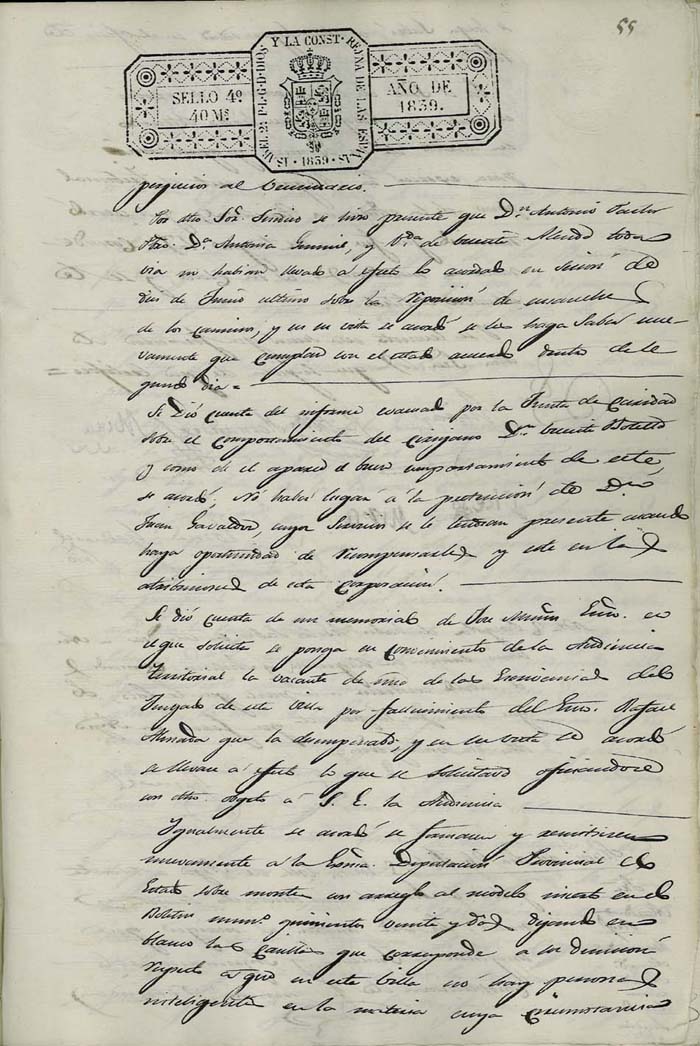 55
ISABEL 2ª P. L. G. D. DIOS Y LA CONST. REYNA DE LAS ESPAÑAS
SELLO 4º
40 Ms
AÑO DE
1839.
1839
perjuicios al Vecindario.
Por dho Sor. Sindico se hizo presente que Dn. Antonio
Dª Antonia y Vda de Vicente toda
via no habian llevado a efecto lo acordado en Sesion de
dies de Junio ultimo sobre la reposicion de ensanches
de los caminos, y en su vista se acordó se les haga saber nue
vamente que cumplan con el citado acuerdo dentro de se
gundo dia =
Se dió cuenta del informe evacuado por la Junta de Caridad
sobre el comportamiento del cirujano Dn. Vicente Botella
y como de el aparece el buen comportamiento de este,
se acordó, No haber lugar a la pretencion de Dn.
Juan Gavaldon, cuyos Servicios se le tendran presente cuando
haya oportunidad de recompensarle y este en las
atribuciones de esta Corporacion.
Se dió cuenta de un memorial de Jose Esno. en
el que solicita se ponga en conocimiento de la Audiencia
Territorial la vacante de una de las Escrivanias del
Juzgado de esta villa por fallecimiento del Esno. Rafael
que la desempeñaba, y en su vista se acordó
se llevase a efecto lo que se solicitava oficiandose
con dho objeto a S. E. la Audiencia
Igualmente se acordó se formasen y remitiesen
nuevamente a la Exma. Diputacion Provincial los
Estados sobre montes con arreglo al modelo inserto en el
Boletin numº quinientos veinte y dos, dejando en
blanco las casillas que corresponde a su dimension
respecto a que en esta villa no hay personas
inteligentes en la materia cuya circunstancia